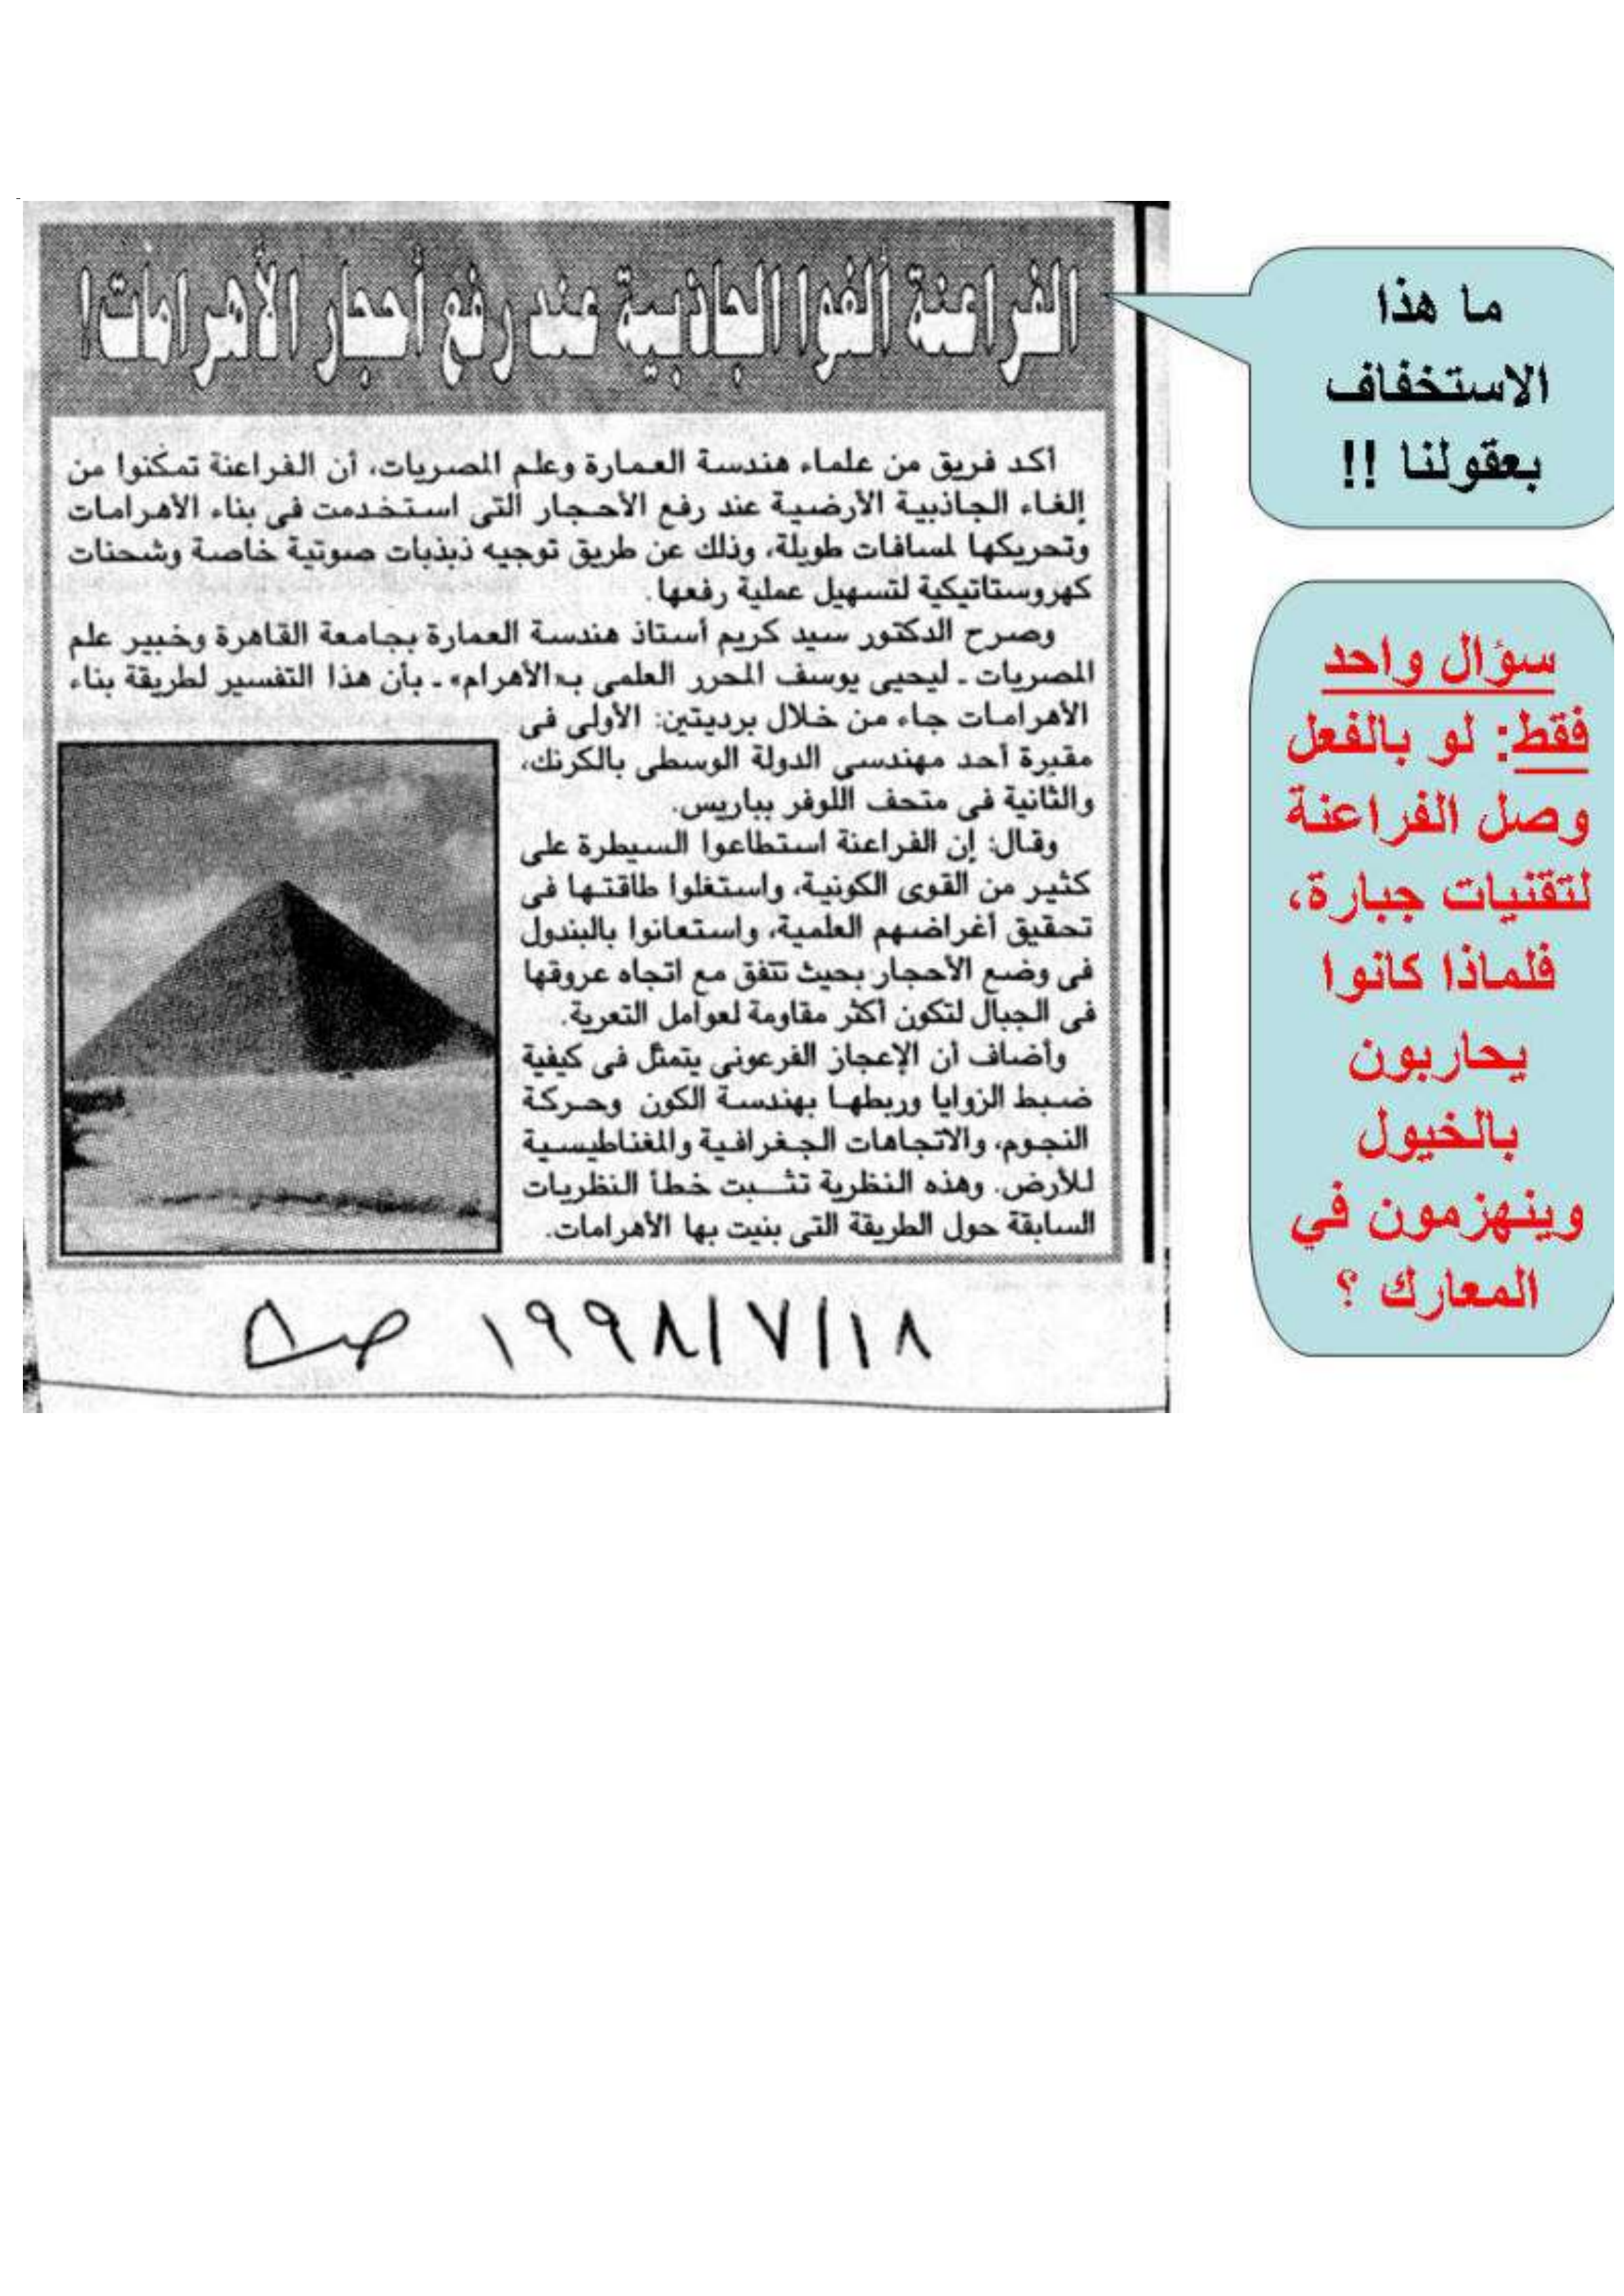 الفراعنة ألغوا الجاذبية عند رفع أحجار الأهرامات!
أكد فريق من علماء هندسة العمارة وعلم المصريات، أن الفراعنة تمكنوا من
إلغاء الجاذبية الأرضية عند رفع الأحجار التى استخدمت فى بناء الأهرامات
وتحريكها لمسافات طويلة، وذلك عن طريق توجيه ذبذبات صوتية خاصة وشحنات
كهروستاتيكية لتسهيل عملية رفعها.
وصرح الدكتور سيد كريم أستاذ هندسة العمارة بجامعة القاهرة وخبير علم
المصريات ـ ليحيى يوسف المحرر العلمى بـ«الأهرام» ـ بأن هذا التفسير لطريقة بناء
الأهرامات جاء من خلال برديتين: الأولى فى
مقبرة أحد مهندسى الدولة الوسطى بالكرنك،
والثانية فى متحف اللوفر بباريس.
وقال: إن الفراعنة استطاعوا السيطرة على
كثير من القوى الكونية، واستغلوا طاقتها فى
تحقيق أغراضهم العلمية، واستعانوا بالبندول
فى وضع الأحجار بحيث تتفق مع اتجاه عروقها
فى الجبال لتكون أكثر مقاومة لعوامل التعرية.
وأضاف أن الإعجاز الفرعونى يتمثل فى كيفية
ضبط الزوايا وربطها بهندسة الكون وحركة
النجوم، والاتجاهات الجغرافية والمغناطيسية
للأرض. وهذه النظرية تثبت خطأ النظريات
السابقة حول الطريقة التى بنيت بها الأهرامات.
١٩٩٨/٧/١٨ ص٨
ما هذا
الاستخفاف
بعقولنا !!
سؤال واحد
فقط: لو بالفعل
وصل الفراعنة
لتقنيات جبارة،
فلماذا كانوا
يحاربون
بالخيول
وينهزمون في
المعارك ؟